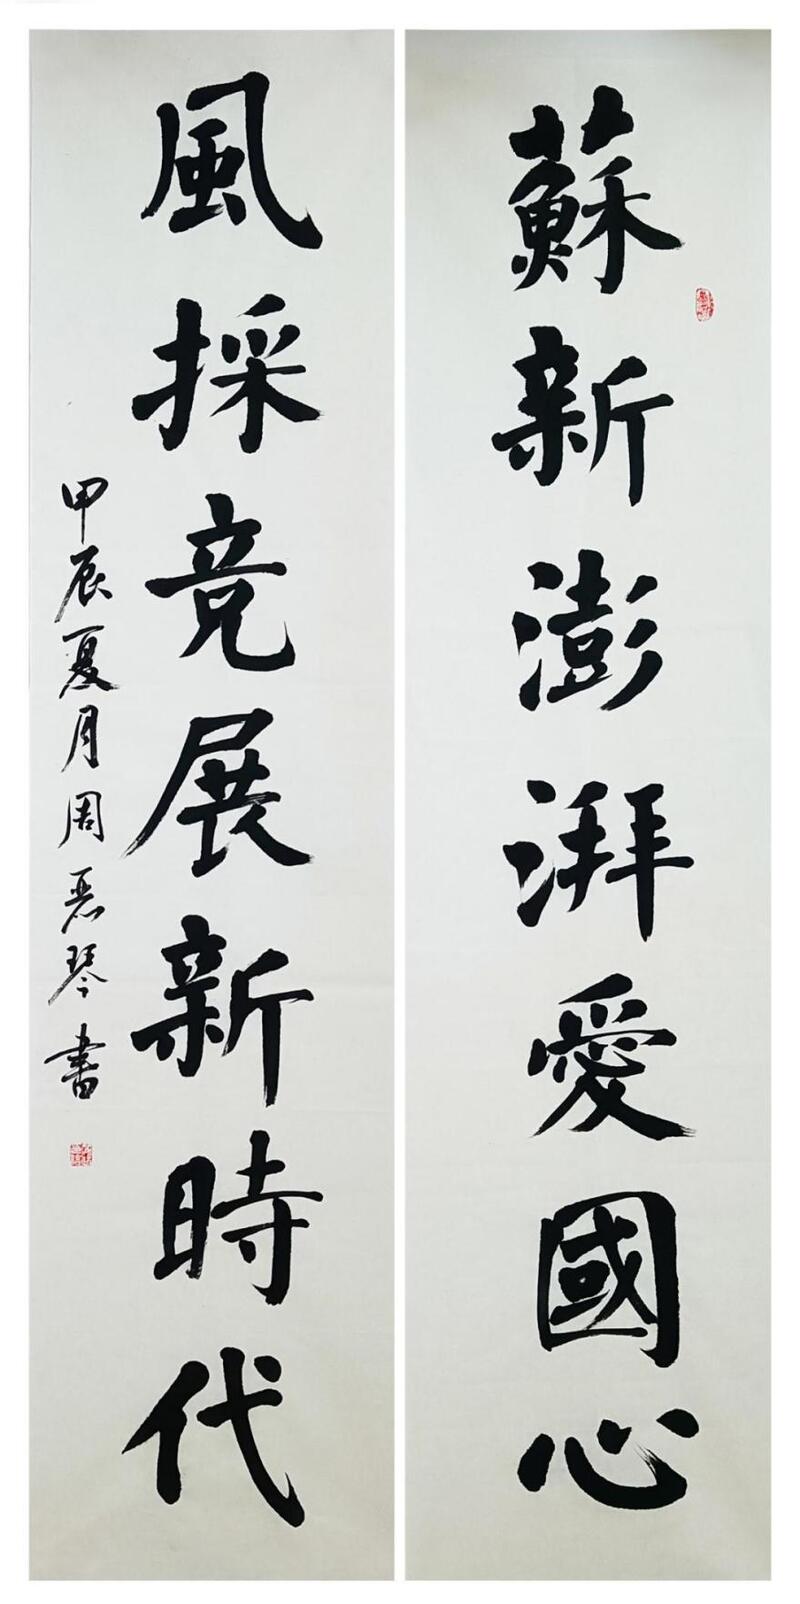 蘇新澎湃愛國心
風採竞展新時代
甲辰夏月周惡琴書